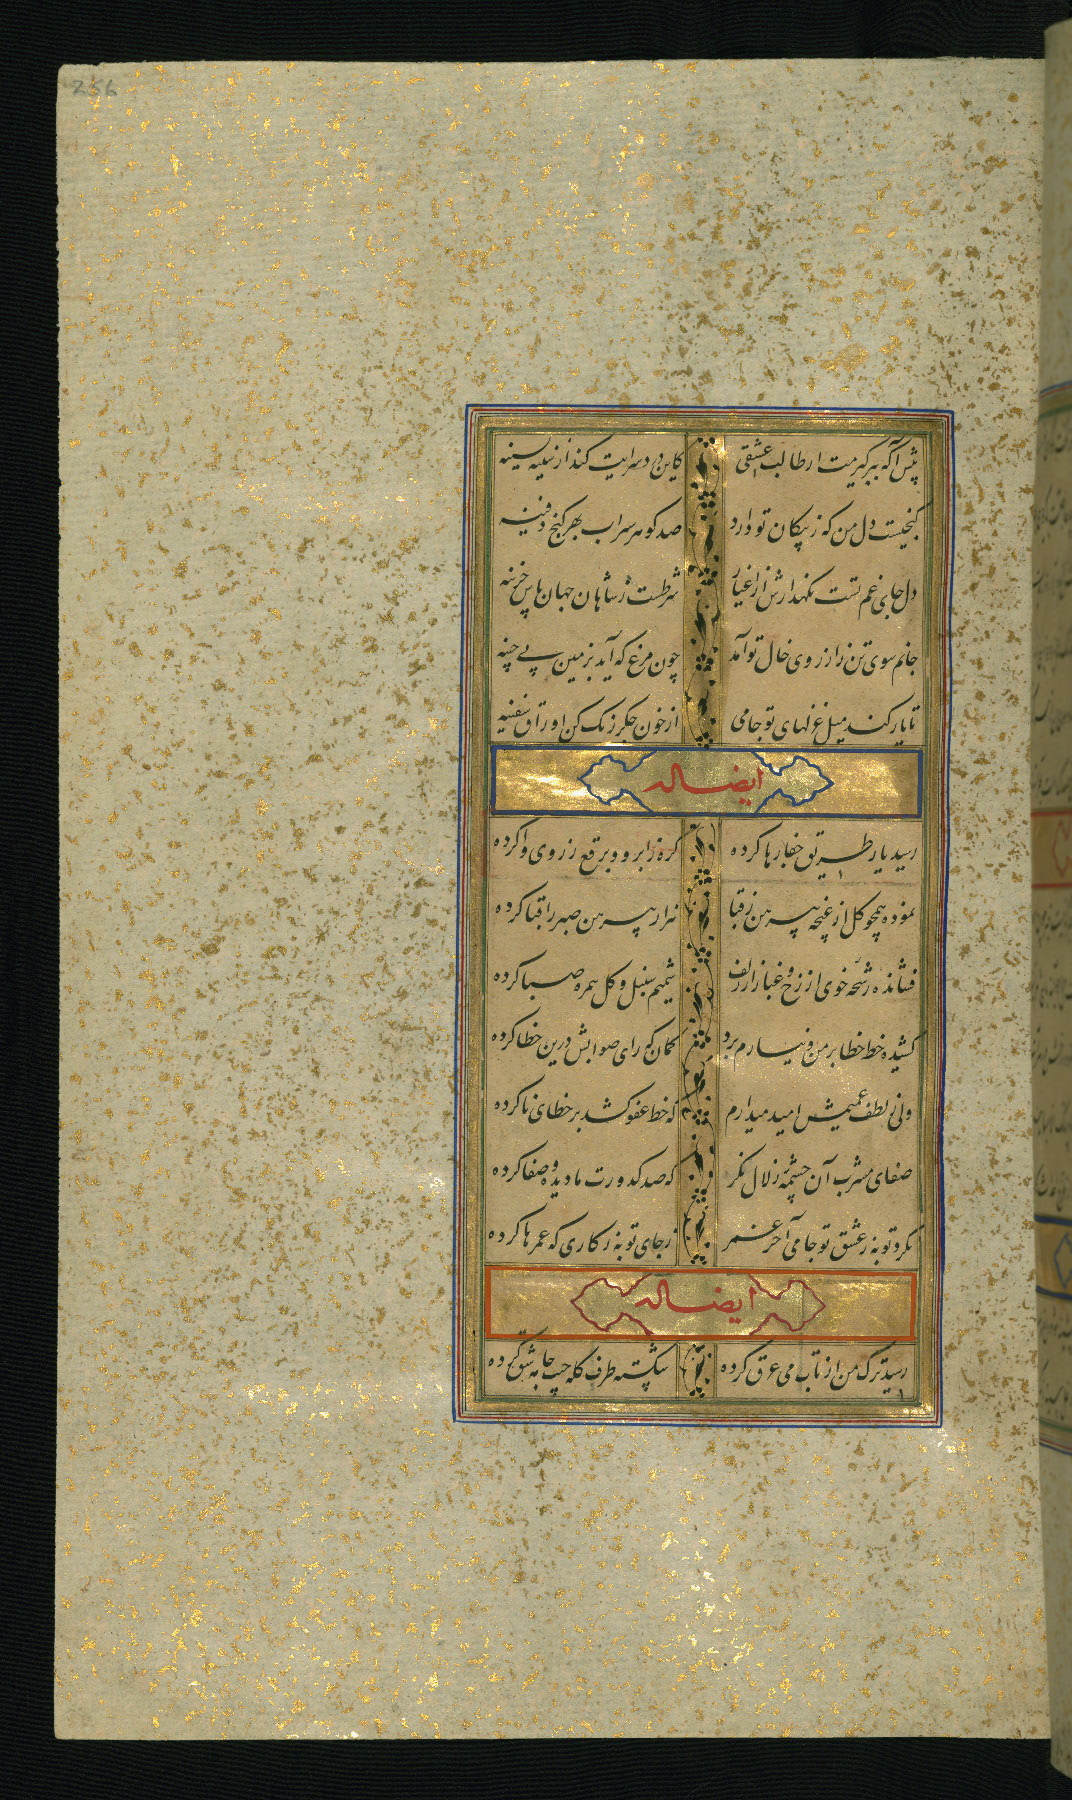 256
پیش آ که ببر گیرمت ار طالب عشقی کاین درد سرایت کند از سینه بسینه
گنجیست دل من که ز پیکان تو دارد صد گوهر سیراب بهر کنج دفینه
دل جای غم تست نگهدارش از اغیار شرطست ز شاهان جهان پاس خزینه
جانم سوی تن زارزوی خال تو آمد چون مرغ که آید بزمین از پی چینه
تا یار کند میل غزلهای تو جامی از خون جگر رنگ کن اوراق سفینه
ایضا له
رسید یار طریق جفا رها کرده گره ز ابرو و برقع ز روی وا کرده
نموده همچو گل از غنچه پیرهن ز قبا هزار پیرهن صبر را قبا کرده
فشانده رشحه خوی از رخ و غبار از زلف شمیم سنبل و گل همره صبا کرده
کشیده خط خطا بر من و نیارم برد گمان که رای صوابش درین خطا کرده
ولی ز لطف عمیمش امید میدارم که خط عفو کشد بر خطای نا کرده
صفای مشرب آن چشمه زلال نگر که صد کدورت ما دیده و صفا کرده
نکرد توبه ز عشق تو جامی آخر عمر چه جای توبه ز کاری که عمرها کرده
ایضا له
رسید ترک من از تاب می عرق کرده شکسته طرف کله جیب جامه شق کرده